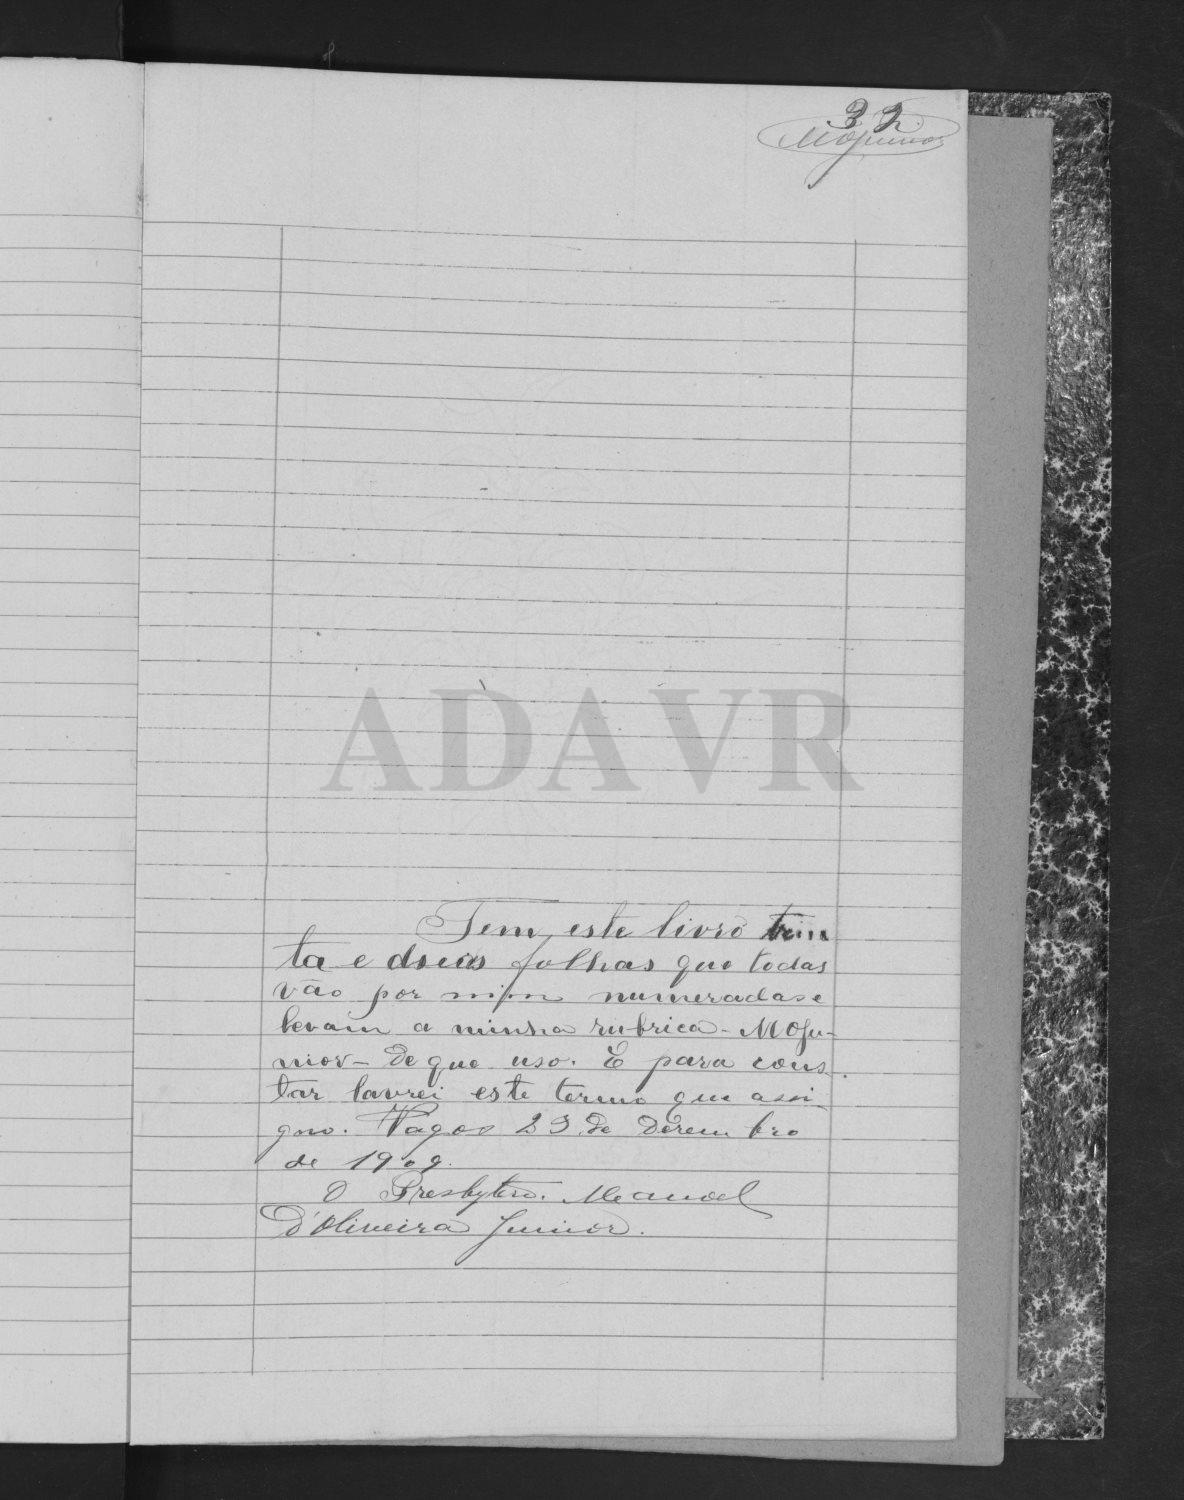 32
MOJunior
ADAVR
Tem este livro trin
ta e duas folhas que todas
vão por mim numeradas e
levam a minha rubrica - MOJu-
nior - de que uso. E para cons
tar lavrei este termo que assi
gno. Vagos 23 de Dezembro
de 1909.
O Presbytero. Manoel
d'Oliveira Junior.